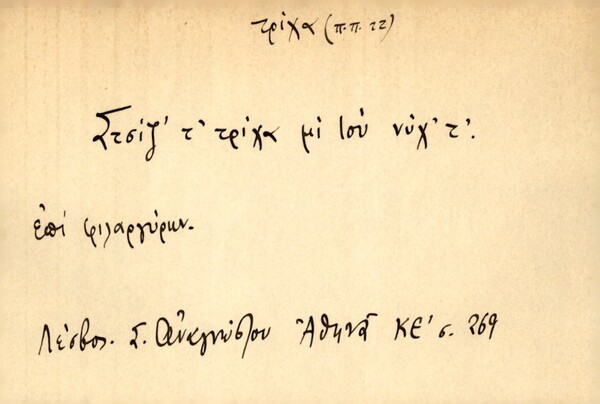 τρίχα (π.π. 22)
Στσίζ' τ' τρίχα μὶ τοὺ νύχ' τ'.
ἐπὶ φιλαργύρων.
Λέσβος. Σ. Ἀναγνώστου Ἀθηνᾶ ΚΕ' σ. 269